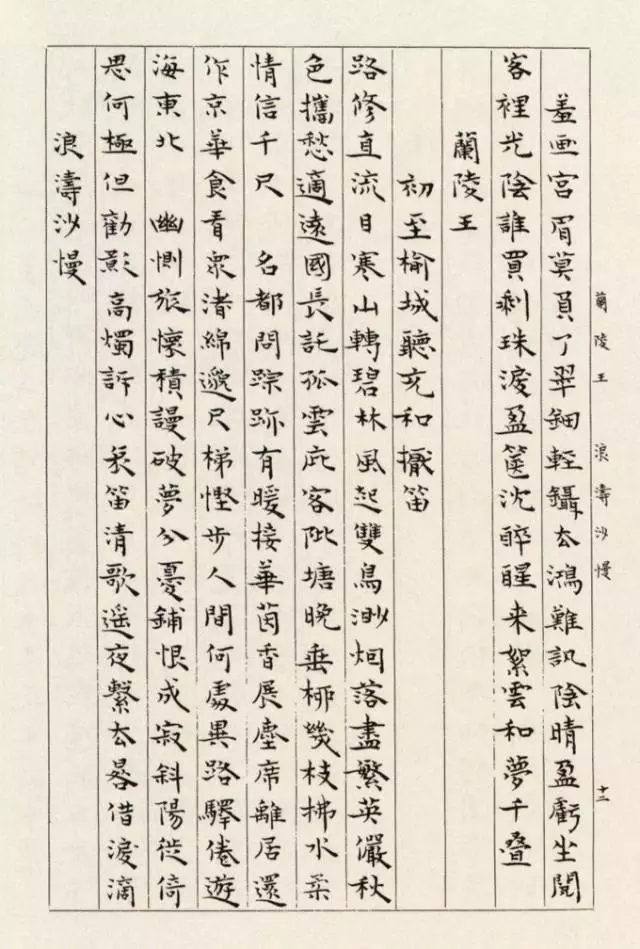 蘭陵王 浪濤沙慢 十二
羞画宮眉莫負了翠鈿輕鑷去鴻難訊陰晴盈虧坐閱
客裡光陰誰買剩珠淚盈篋沈醉醒来絮雲和夢千疊
蘭陵王
初至榆城聽充和擫笛
路修直流目寒山轉碧林風起雙鳥渺烟落盡繁英儼秋
色攜愁適遠國長託孤雲庇客阰塘晚垂柳幾枝拂水柔
情信千尺 名都問踪跡有暖接華茵香展塵席離居還
作京華食看眾渚綿邈尺梯慳步人間何處異路驛倦遊
海東北 幽惻旅懷積謾破夢分憂鋪恨成寂斜陽徙倚
思何極但勸影高燭訴心哀笛清歌遥夜繫去晷借淚滴
浪濤沙慢